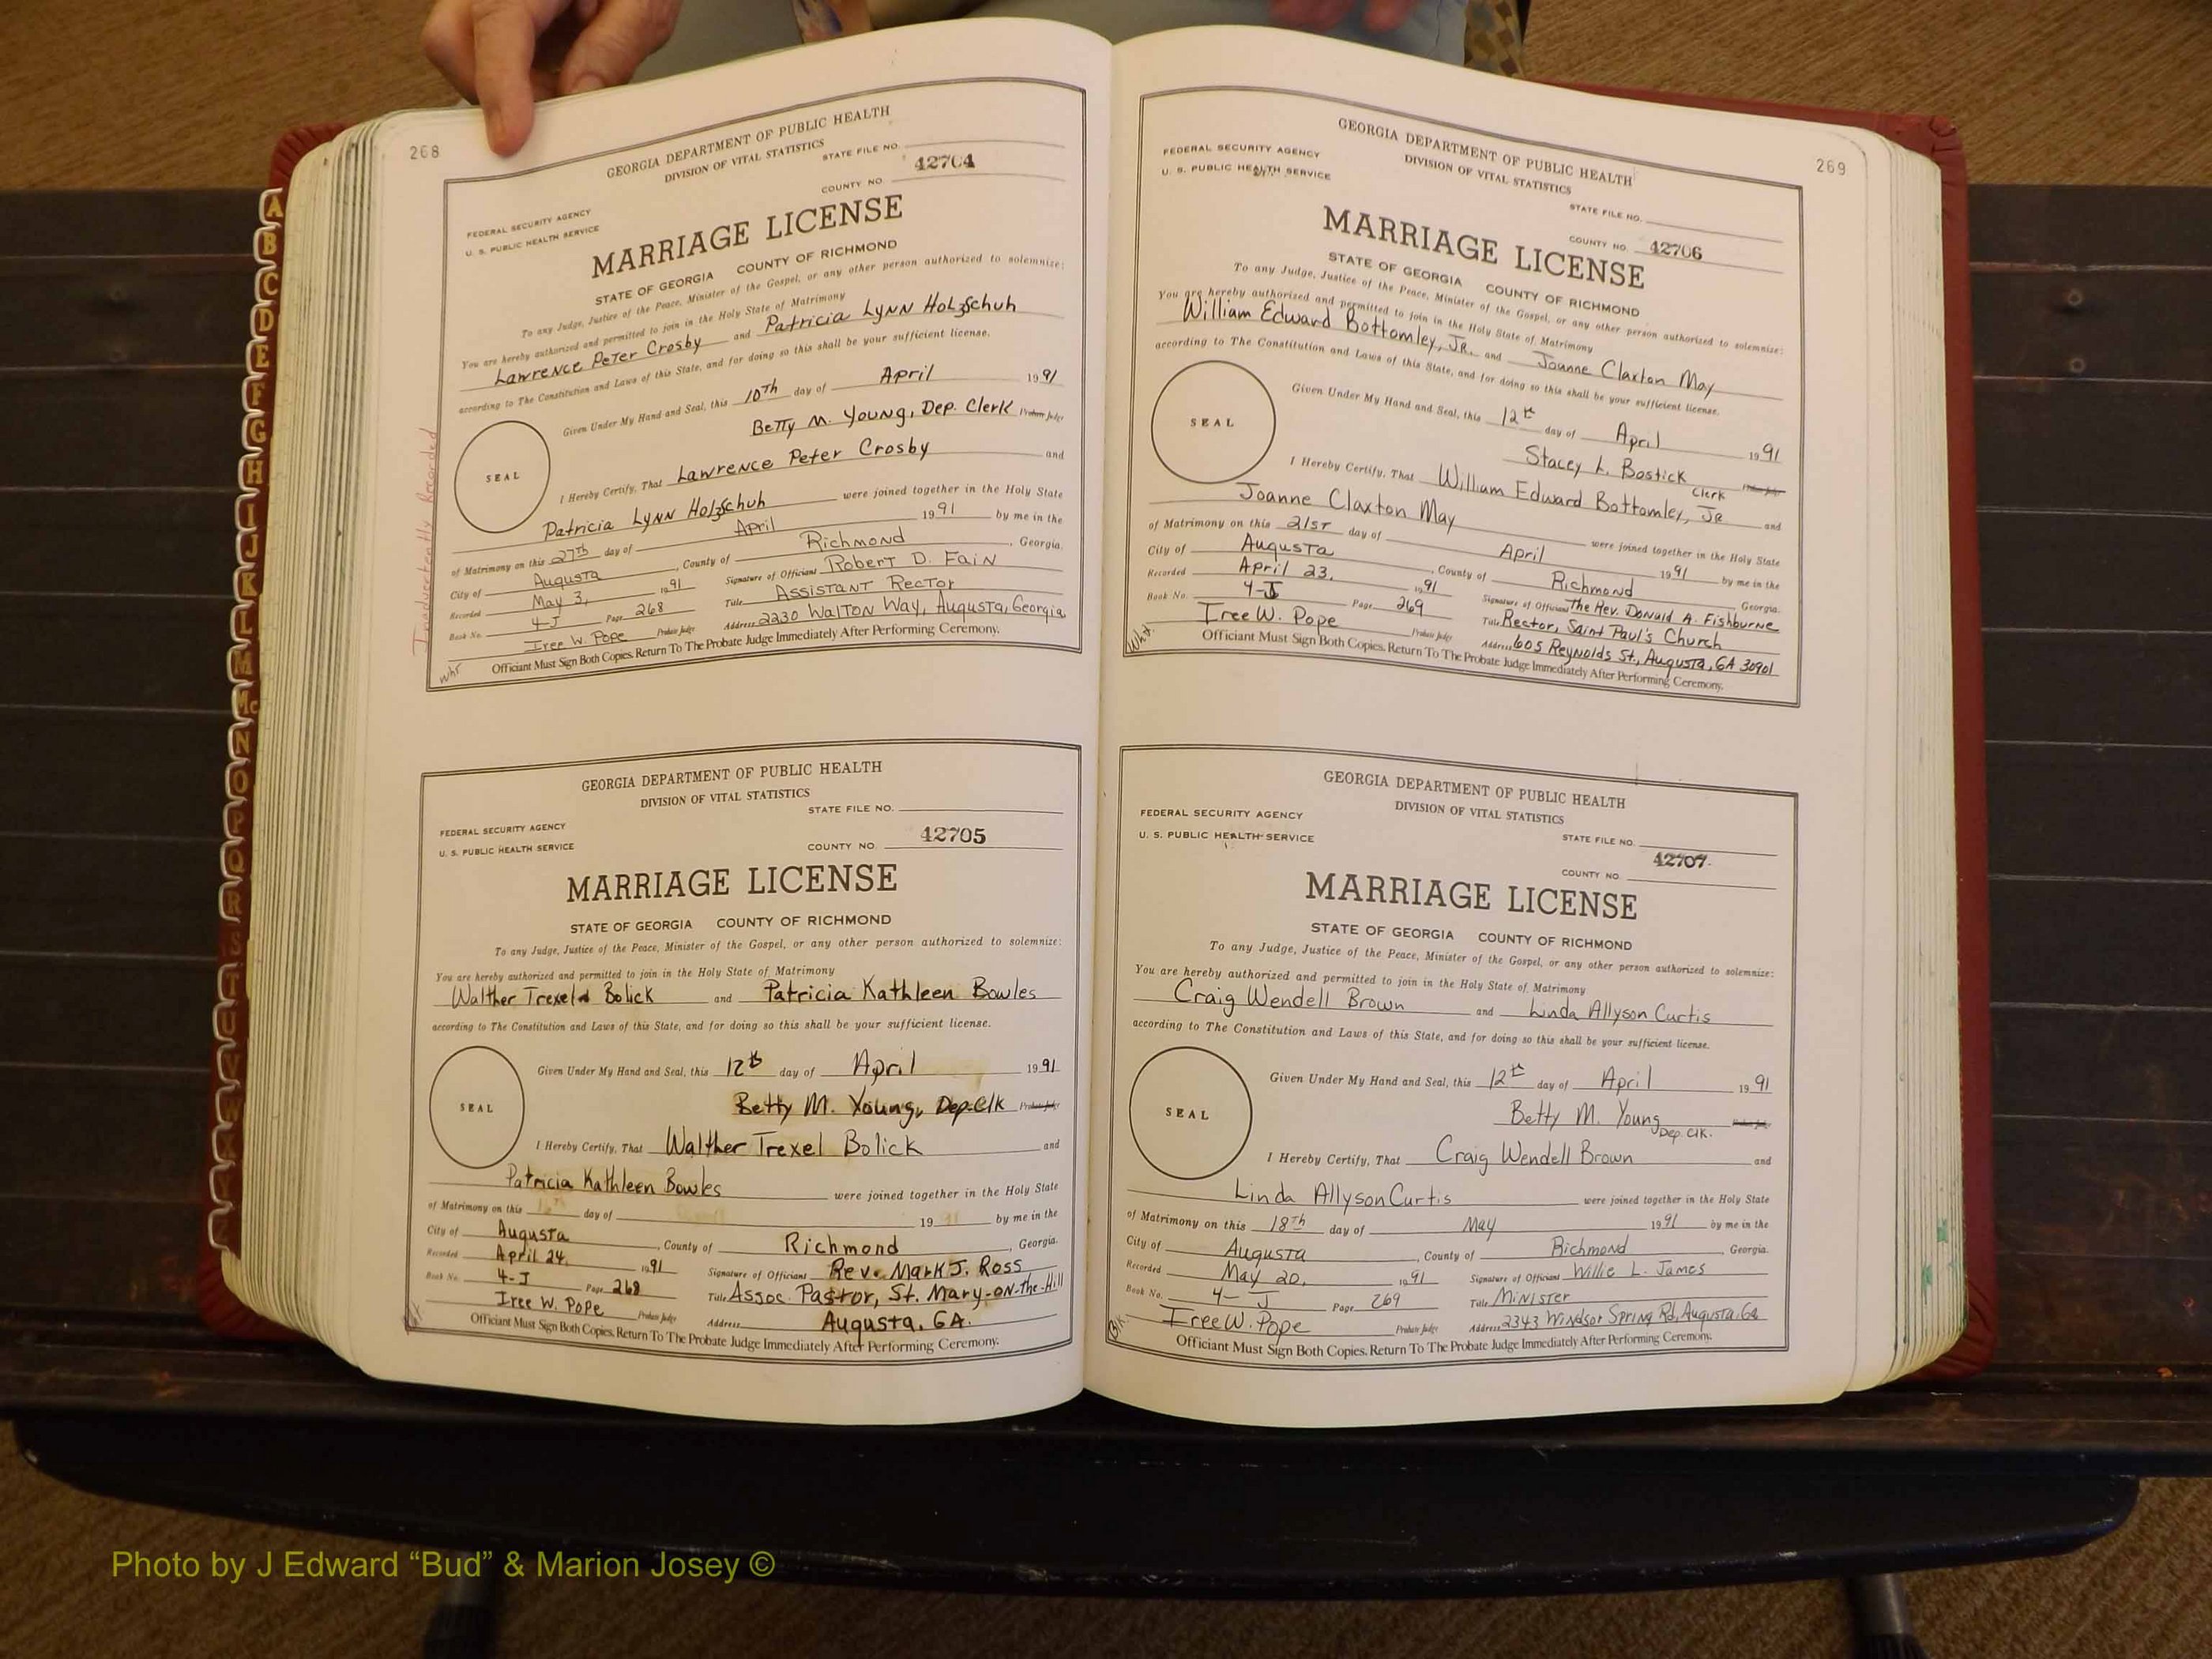 268
GEORGIA DEPARTMENT OF PUBLIC HEALTH
DIVISION OF VITAL STATISTICS
STATE FILE NO.
COUNTY NO. 42704
FEDERAL SECURITY AGENCY
U. S. PUBLIC HEALTH SERVICE
MARRIAGE LICENSE
STATE OF GEORGIA COUNTY OF RICHMOND
To any Judge, Justice of the Peace, Minister of the Gospel, or any other person authorized to solemnize:
You are hereby authorized and permitted to join in the Holy State of Matrimony
Lawrence Peter Crosby and Patricia Lynn Holzschuh
according to The Constitution and Laws of this State, and for doing so this shall be your sufficient license.
Given Under My Hand and Seal, this 10th day of April 1991
Betty M. Young, Dep. Clerk Probate Judge
SEAL
I Hereby Certify, That Lawrence Peter Crosby and
Patricia Lynn Holzschuh were joined together in the Holy State
of Matrimony on this 27th day of April 1991 by me in the
City of Augusta, County of Richmond, Georgia.
Recorded May 3, 1991 Signature of Officiant Robert D. Fain
Book No. 4-J Page 268 Title Assistant Rector
Iree W. Pope Probate Judge Address 2230 Walton Way, Augusta, Georgia
Officiant Must Sign Both Copies. Return To The Probate Judge Immediately After Performing Ceremony.
Inadvertently Recorded
whr
GEORGIA DEPARTMENT OF PUBLIC HEALTH
DIVISION OF VITAL STATISTICS
STATE FILE NO.
FEDERAL SECURITY AGENCY
U. S. PUBLIC HEALTH SERVICE
COUNTY NO. 42705
MARRIAGE LICENSE
STATE OF GEORGIA COUNTY OF RICHMOND
To any Judge, Justice of the Peace, Minister of the Gospel, or any other person authorized to solemnize:
You are hereby authorized and permitted to join in the Holy State of Matrimony
Walther Bolick and Patricia Kathleen Bowles
according to The Constitution and Laws of this State, and for doing so this shall be your sufficient license.
Given Under My Hand and Seal, this 12th day of April 1991
Betty M. Young, Dep. Clk Probate Judge
SEAL
I Hereby Certify, That Walther Trexel Bolick and
Patricia Kathleen Bowles were joined together in the Holy State
of Matrimony on this day of 19 91 by me in the
City of Augusta, County of Richmond, Georgia.
Recorded April 24, 1991 Signature of Officiant Rev. Mark J. Ross
Book No. 4-J Page 268 Title Assoc. Pastor, St. Mary-on-the-Hill
Iree W. Pope Probate Judge Address Augusta, GA.
Officiant Must Sign Both Copies. Return To The Probate Judge Immediately After Performing Ceremony.
269
GEORGIA DEPARTMENT OF PUBLIC HEALTH
DIVISION OF VITAL STATISTICS
FEDERAL SECURITY AGENCY
U. S. PUBLIC HEALTH SERVICE
STATE FILE NO.
COUNTY NO. 42706
MARRIAGE LICENSE
STATE OF GEORGIA COUNTY OF RICHMOND
To any Judge, Justice of the Peace, Minister of the Gospel, or any other person authorized to solemnize:
You are hereby authorized and permitted to join in the Holy State of Matrimony
William Edward Bottomley, Jr. and Joanne Claxton May
according to The Constitution and Laws of this State, and for doing so this shall be your sufficient license.
Given Under My Hand and Seal, this 12th day of April 1991
Stacey L. Bostick Clerk Probate Judge
SEAL
I Hereby Certify, That William Edward Bottomley, Jr and
Joanne Claxton May were joined together in the Holy State
of Matrimony on this 21st day of April 1991 by me in the
City of Augusta, County of Richmond Georgia.
Recorded April 23, 1991 Signature of Officiant The Rev. Donald A. Fishburne
Book No. 4-J Page 269 Title Rector, Saint Paul's Church
Iree W. Pope Probate Judge Address 605 Reynolds St., Augusta, GA 30901
Officiant Must Sign Both Copies. Return To The Probate Judge Immediately After Performing Ceremony.
GEORGIA DEPARTMENT OF PUBLIC HEALTH
DIVISION OF VITAL STATISTICS
FEDERAL SECURITY AGENCY
U. S. PUBLIC HEALTH SERVICE
STATE FILE NO.
COUNTY NO. 42707
MARRIAGE LICENSE
STATE OF GEORGIA COUNTY OF RICHMOND
To any Judge, Justice of the Peace, Minister of the Gospel, or any other person authorized to solemnize:
You are hereby authorized and permitted to join in the Holy State of Matrimony
Craig Wendell Brown and Linda Allyson Curtis
according to The Constitution and Laws of this State, and for doing so this shall be your sufficient license.
Given Under My Hand and Seal, this 12th day of April 1991
Betty M. Young Dep. Clk. Probate Judge
SEAL
I Hereby Certify, That Craig Wendell Brown and
Linda Allyson Curtis were joined together in the Holy State
of Matrimony on this 18th day of May 1991 by me in the
City of Augusta, County of Richmond, Georgia.
Recorded May 20, 1991 Signature of Officiant Willie L. James
Book No. 4-J Page 269 Title Minister
Iree W. Pope Probate Judge Address 2343 Windsor Spring Rd, Augusta, Ga
Officiant Must Sign Both Copies. Return To The Probate Judge Immediately After Performing Ceremony.
A
B
C
D
E
F
G
H
I
J
K
L
M
Mc
N
O
P
Q
R
S
T
U
V
W
Photo by J Edward “Bud” & Marion Josey ©